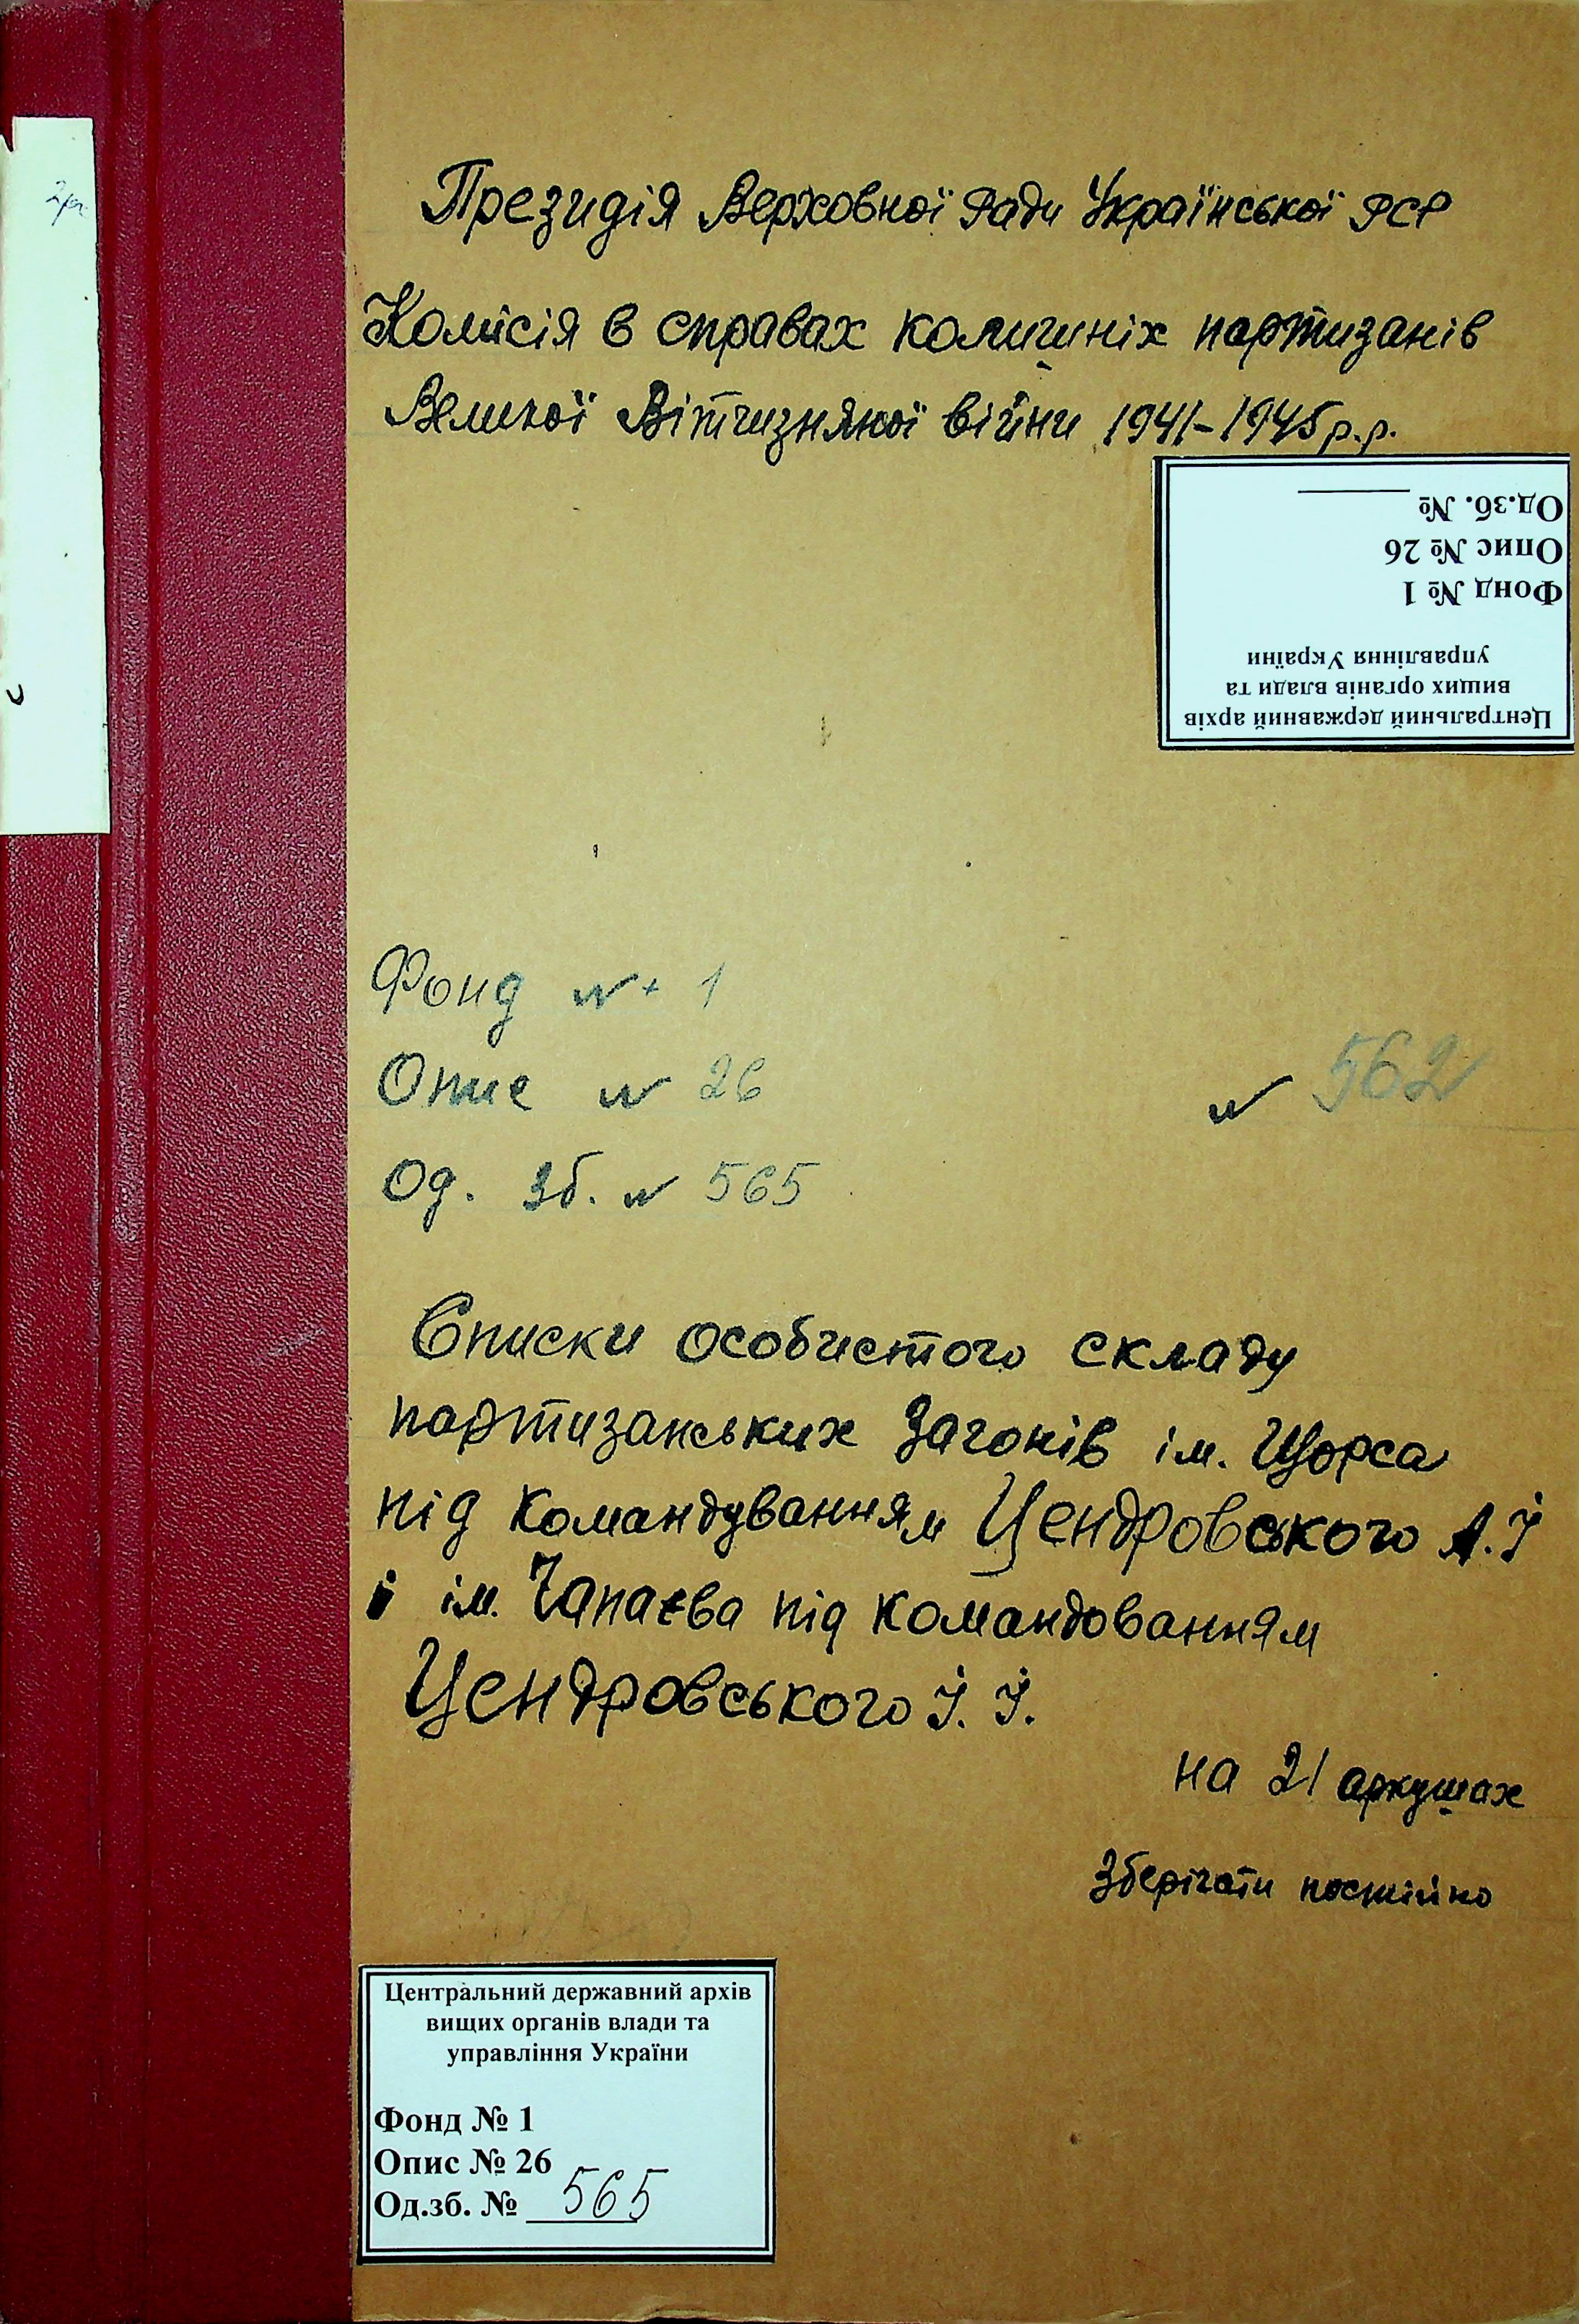 Президія Верховної Ради Української РСР
Комісія в справах колишніх партизанів
Великої Вітчизняної війни 1941-1945 р.р.
Центральний державний архів
вищих органів влади та
управління України
Фонд № 1
Опис № 26
Од.зб. №
Фонд № 1
Опис № 26
№ 562
Од. зб. № 565
Списки особистого складу
партизанських загонів ім. Щорса
під командуванням Цендровського А.І
і ім. Чапаєва під командованням
Цендровського І. І.
на 21 аркушах
Зберігати постійно
Центральний державний архів
вищих органів влади та
управління України
Фонд № 1
Опис № 26
Од.зб. № 565